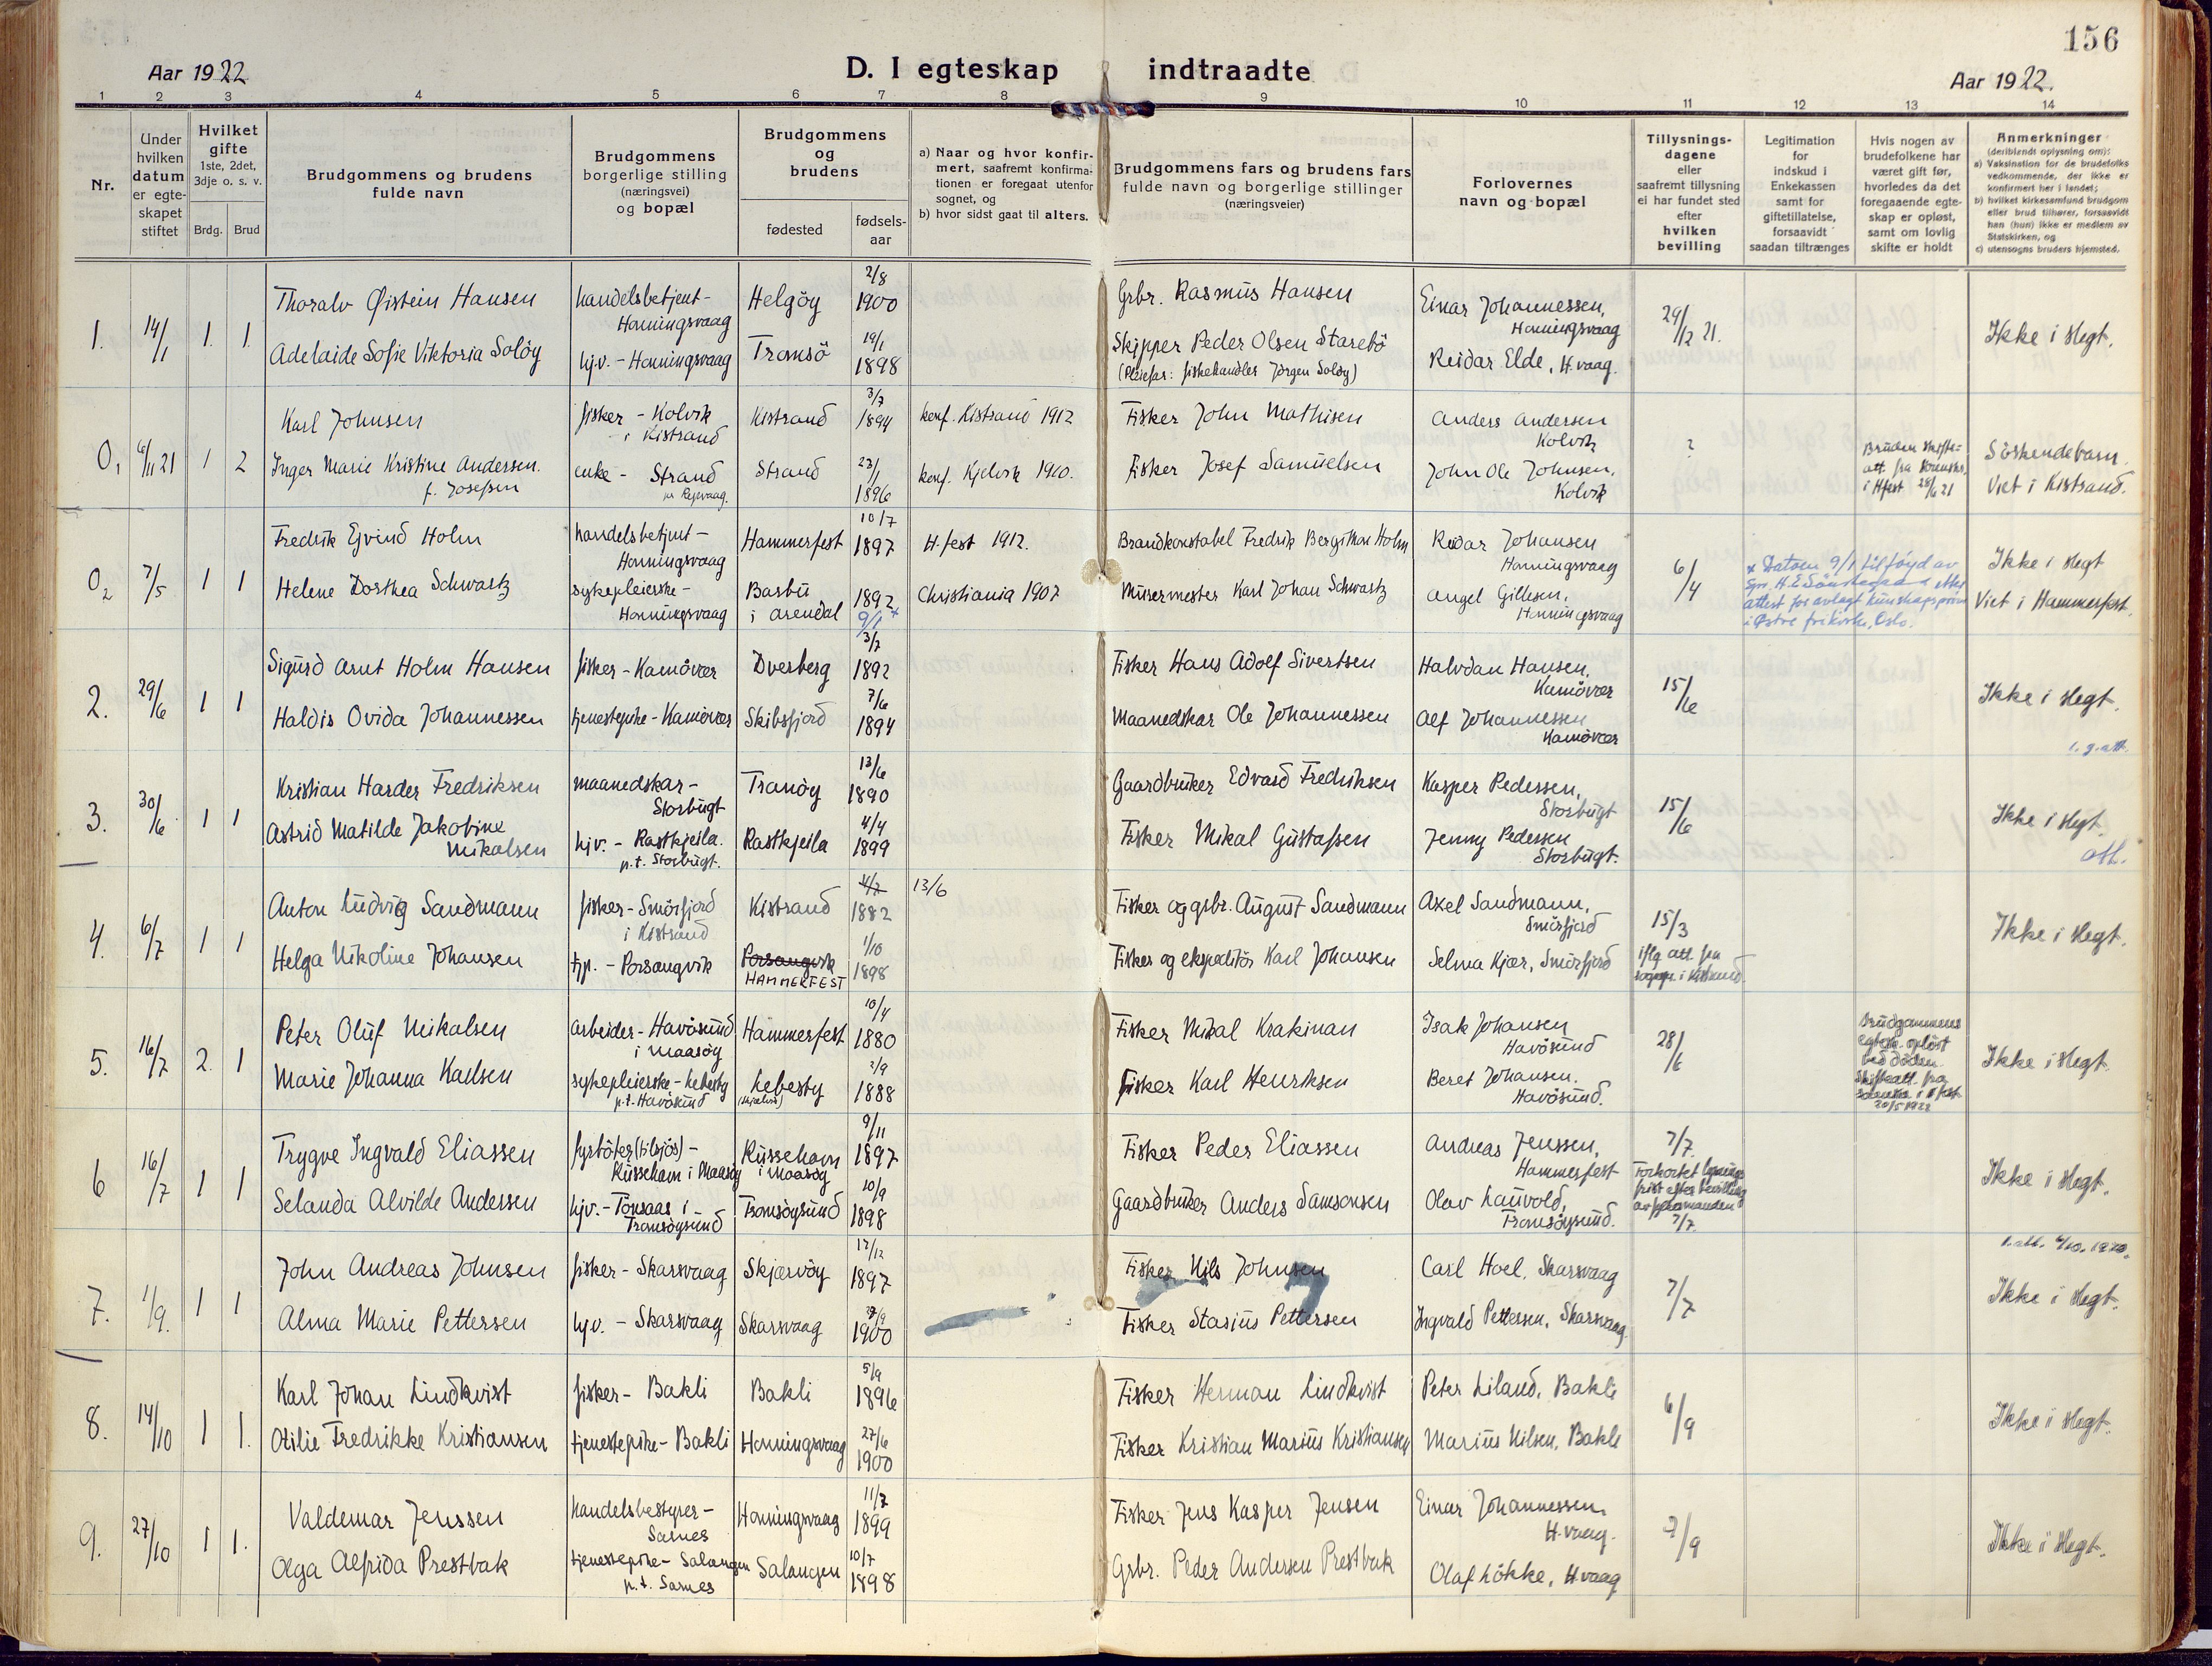 156
Aar 1922
D. I egteskap indtraadte
Aar 1922.
1 2 3 4 5 6 7 8 9 10 11 12 13 14
Nr.
Under hvilken datum er egteskapet stiftet
Hvilket gifte 1ste, 2det, 3dje o. s. v.
Brdg. Brud
Brudgommens og brudens fulde navn
Brudgommens borgerlige stilling (næringsvei) og bopæl
Brudgommens og brudens
fødested
fødselsaar
a) Naar og hvor konfirmert, saafremt konfirmationen er foregaat utenfor sognet, og
b) hvor sidst gaat til alters.
Brudgommens fars og brudens fars fulde navn og borgerlige stillinger (næringsveier)
Forlovernes navn og bopæl
Tillysningsdagene eller saafremt tillysning ei har fundet sted efter hvilken bevilling
Legitimation for indskud i Enkekassen samt for giftetillatelse, forsaavidt saadan tiltrænges
Hvis nogen av brudefolkene har været gift før, hvorledes da det foregaaende egteskap er opløst, samt om lovlig skifte er holdt
Anmerkninger (deriblandt oplysning om):
a) Vaksination for de brudefolks vedkommende, der ikke er konfirmert her i landet;
b) hvilket kirkesamfund brudgom eller brud tilhører, forsaavidt han (hun) ikke er medlem av Statskirken, og
c) utensogns bruders hjemsted.
1. 14/1 1. 1.
Thoralv Øistein Hansen handelsbetjent - Honningsvaag Helgöy 2/8 1900 Grbr. Rasmus Hansen Einar Johannessen, Honningsvaag 29/12 21. Ikke i slegt.
Adelaide Sofie Viktoria Solöy hj.v. - Honningsvaag Tromsö 19/1 1898 Skipper Peder Olsen Starebö (Pleiefar: fiskehandler Jørgen Solöy) Reidar Elde, H.vaag.
0,1 6/11 21 1 2
Karl Johnsen fisker - Kolvik i Kistrand Kistrand 3/7 1894 konf. Kistrand 1912 Fisker John Mathisen Anders Andersen Kolvik ? Bruden skifteatt. fra sorenskr. i Hfest 28/6 21 Söskendebarn.
Inger Marie Kristine Andersen. f. Josefsen enke - Strand Strand 23/1 1896 konf. Kjelvik 1910. Fisker Josef Samuelsen John Ole Johnsen, Kolvik Viet i Kistrand.
02 7/5 1 1
Fredrik Ejvind Holm handelsbetjent - Honningsvaag Hammerfest 10/7 1897 H.fest 1912. Brandkonstabel Fredrik Bergithon Holm Reidar Johansen Honningsvaag 6/4 x Datoen 9/1 tilføyd av Ikke i slegt
Helene Dorthea Schwartz sykepleierske - Honningsvaag Barbu i Arendal 1892 9/1 x Christiania 1907 Murermester Karl Johan Schwartz Angel Gillesen, Honningsvaag attest for avlagt kunskapsprøve i Østre frikirke, Oslo. Viet i Hammerfest.
2. 29/6 1 1
Sigurd Arnt Holm Hansen fisker - Kamöver Dverberg 3/7 1892 Fisker Hans Adolf Sivertsen Halvdan Hansen, Kamöver 15/6 Ikke i slegt.
Haldis Ovida Johannessen tjenestepike - Kamöver Skibsfjord 7/6 1894 Maanedskar Ole Johannessen Alf Johannessen Kamöver
3. 30/6 1 1
Kristian Harder Fredriksen maanedskar - Storbugt Tranöy 13/6 1890 Gaardbruker Edvard Fredriksen Kasper Pedersen, Storbugt 15/6 Ikke i slegt.
Astrid Matilde Jakobine Mikalsen hj.v. - Rastkjeila. p.t. Storbugt. Rastkjeila 4/4 1899 Fisker Mikal Gustafsen Jenny Pedersen Storbugt. att.
4. 6/7 1 1
Anton Ludvig Sandmann fisker - Smörfjord i Kistrand Kistrand 4/2 1882 13/6 Fisker og grbr. August Sandmann Axel Sandmann, Smörfjord 15/3 Ikke i slegt.
Helga Nikoline Johansen tjp. - Porsangvik Porsangvik HAMMERFEST 1/10 1898 Fisker og ekspeditör Karl Johansen Selma Kjær, Smörfjord iflg att. fra sognepr. i Kistrand
5. 16/7 2. 1
Peter Oluf Mikalsen arbeider - Havösund i Maasöy Hammerfest 10/4 1880 Fisker Mikal Krakinan Isak Johansen Havösund 28/6 Brudgommens egtesk. oplöst ved döden. Skifteatt. fra i Hfest 20/5 1922 Ikke i slegt.
Marie Johanna Karlsen sykepleierske - Lebesby p.t. Havösund Lebesby 2/9 1888 Fisker Karl Henriksen Beret Johansen. Havösund.
6 16/7 1 1
Trygve Ingvald Eliassen fyrböter (tilsjös) - Russehavn i Maasöy Russehavn i Maasöy 9/11 1897 Fisker Peder Eliassen Andreas Jenssen, Hammerfest 7/7. Forkortet lysningsfrist efter bevilling av 7/7. Ikke i slegt.
Selanda Alvilde Andersen hj.v. - Tönsaas i Tromsöysund Tromsöysund 10/9 1898 Gaardbruker Anders Samsonsen Olav Lauvold, Tromsöysund.
7. 1/9. 1 1
John Andreas Johnsen fisker - Skarsvaag Skjærvöy 12/12 1897 Fisker Nils Johnsen Carl Hoel, Skarsvaag 7/7 Ikke i slegt.
Alma Marie Pettersen hj.v. - Skarsvaag Skarsvaag 1900 Fisker Stasius Pettersen Ingvald Pettersen, Skarsvaag.
8. 14/10 1 1.
Karl Johan Lindkvist fisker - Bakli Bakli 5/9 1896 Fisker Herman Lindkvist Peter Liland, Bakli 6/9 Ikke i slegt.
Otilie Fredrikke Kristiansen tjenestepike - Bakli Honningsvaag 27/6 1900 Fisker Kristian Marius Kristiansen Marius Nilsen, Bakli
9. 27/10 1 1.
Valdemar Jenssen handelsbestyrer - Sarnes Honningsvaag 11/7 1899 Fisker Jens Kasper Jensen Einar Johannessen, H.vaag. 7/9 Ikke i slegt.
Olga Alfrida Prestbak tjenestepike - Salangen p.t. Sarnes Salangen 10/7 1898 Grbr. Peder Andersen Prestbak Olaf Lökke, H.vaag